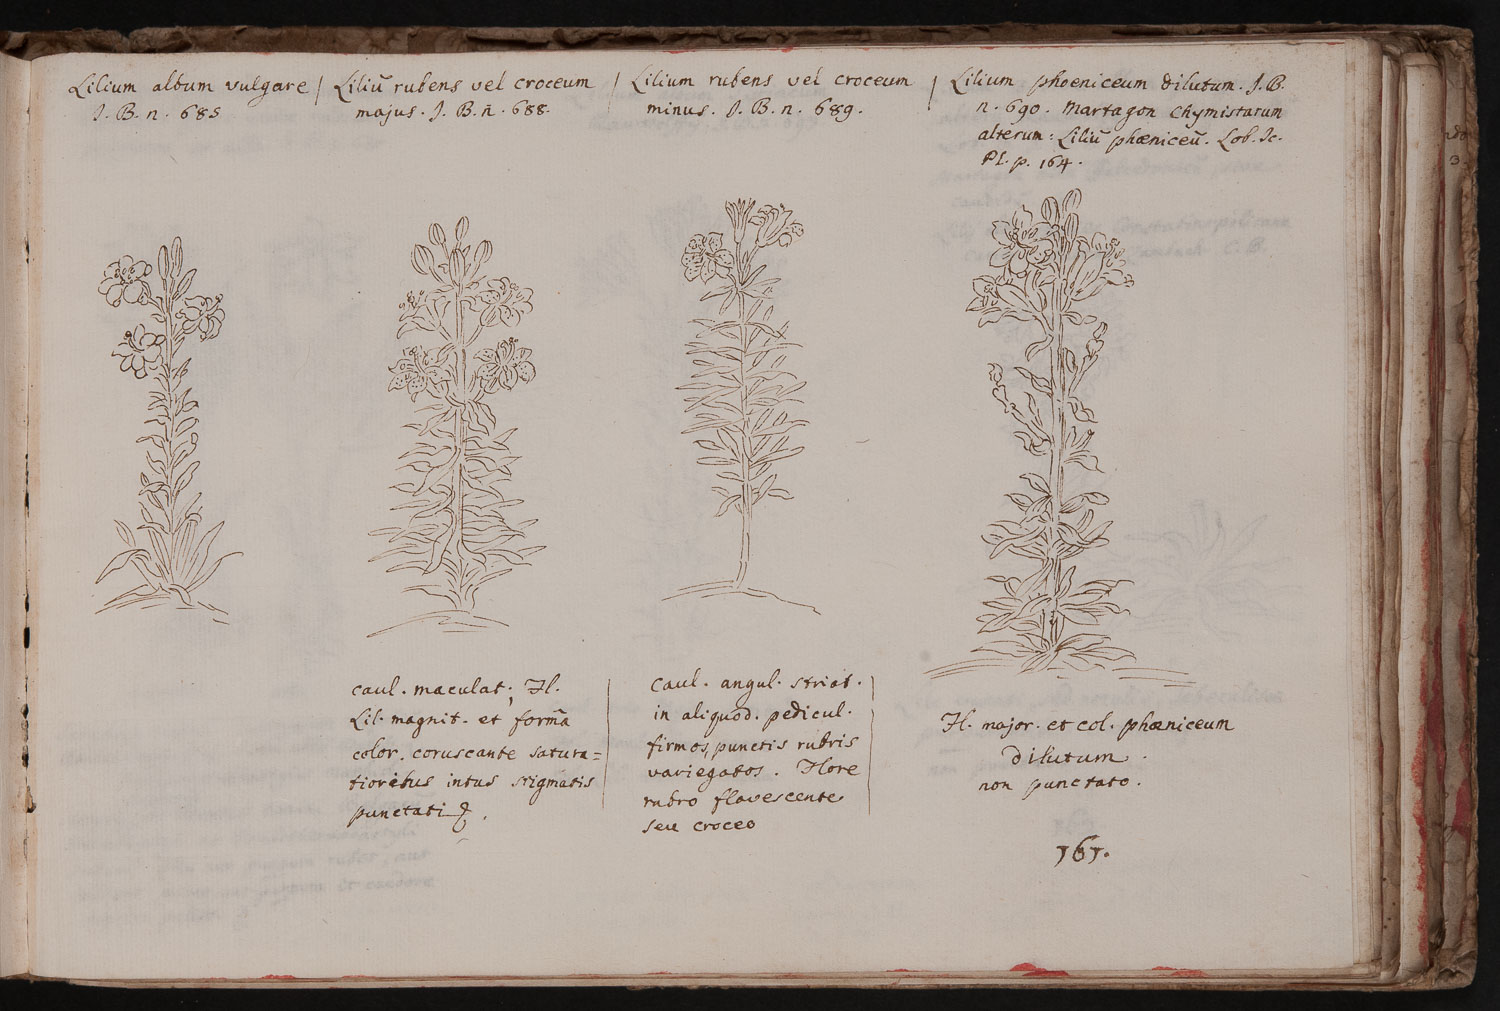 Lilium album vulgare
J. B. n. 685
Liliũ rubens vel croceum
majus. J. B. ñ. 688.
Lilium rubens vel croceum
minus. J. B. n. 689.
Lilium phoeniceum dilutum. J. B.
n. 690. Martagon Chymistarum
alterum: Liliũ phœniceũ. Lob. Ic.
Pl. p. 164.
caul. maculat; Fl.
Lil. magnit. et formã
color. coruscante satura=
tioribus intus stigmatis
punctati
caul. angul. striat.
in aliquod. pedicul.
firmos, punctis rubris
variegatos. Flore
rubro flavescente
seu croceo
Fl. major. et col. phœniceum
dilutum
non punctato.
161.